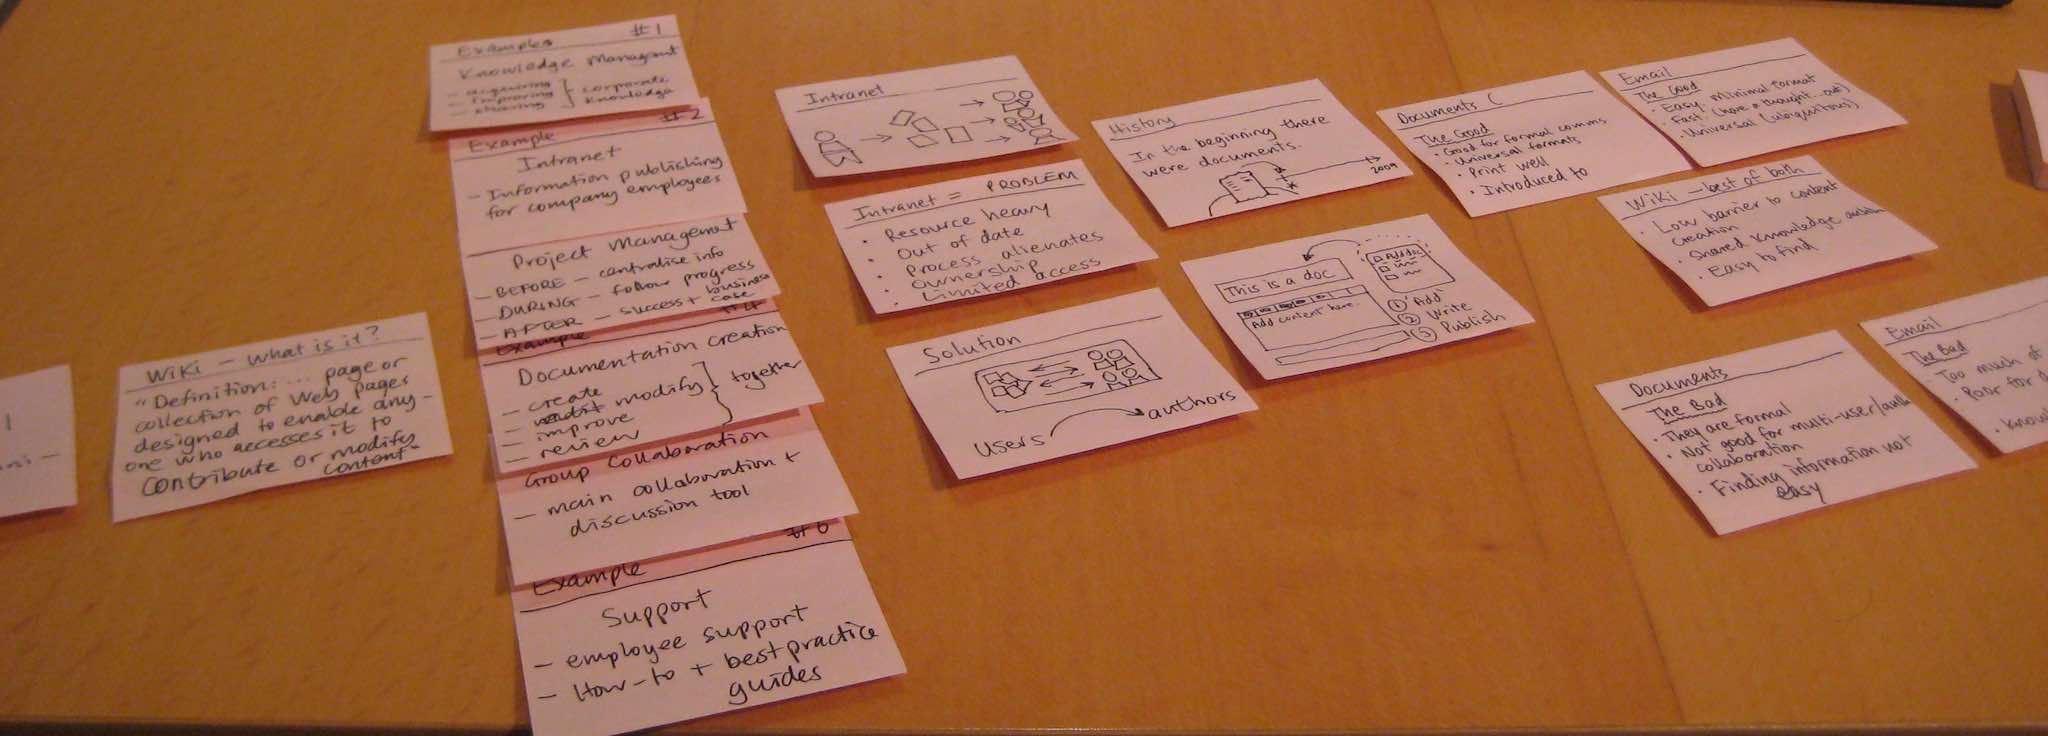 1
Wiki – what is it?
"Definition: ... page or
collection of Web pages
designed to enable any-
one who accesses it to
contribute or modify
content.
Examples #1
Knowledge Managemt
- acquiring
- improving
- sharing
corporate
knowledge
Example #2
Intranet
- Information publishing
for company employees
Project Managemt
- BEFORE - centralise info
- DURING - follow progress
- AFTER - success + business
case
Example #4
Documentation creation
- create
- modify
- improve
- review
together
Group Collaboration
- main collaboration +
discussion tool
Example #6
Support
- employee support
- How-to + best practice
guides
Intranet
Intranet = PROBLEM
• Resource heavy
• Out of date
• Process alienates
• Ownership
• Limited access
Solution
users
authors
History
In the beginning there
were documents.
2009
This is a doc
Add content here.
Add doc
① Add
② Write
③ Publish
Documents (
The Good
• Good for formal comms
• Universal formats
• Print well
• Introduced to
Email
The Good
• Easy. Minimal format
• Fast. (have a thought...out)
• Universal (ubiquitous)
Wiki - best of both
• Low barrier to content
creation
• Shared knowledge
• Easy to find
Documents
The Bad
• They are formal
• Not good for multi-user/
collaboration
• Finding information not
easy
Email
The Bad
• Too much of
• Poor for
• Know